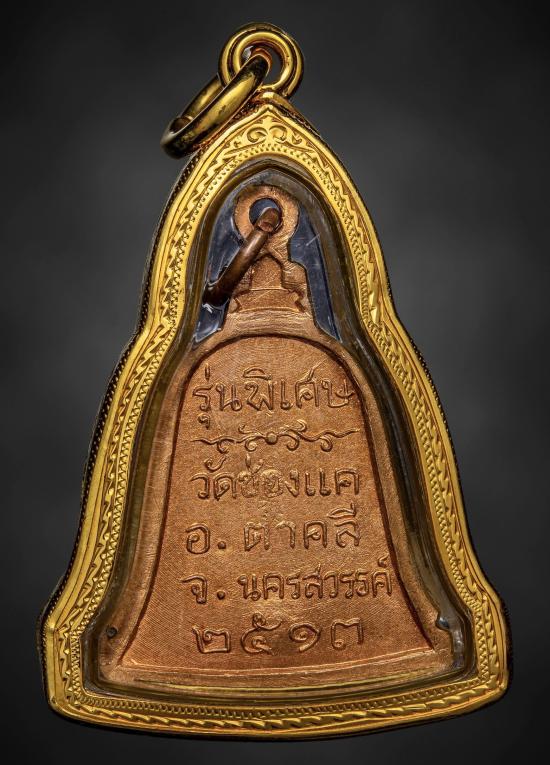 รุ่นพิเศษ
วัดช่องแค
อ. ตาคลี
จ. นครสวรรค์
๒๕๑๓